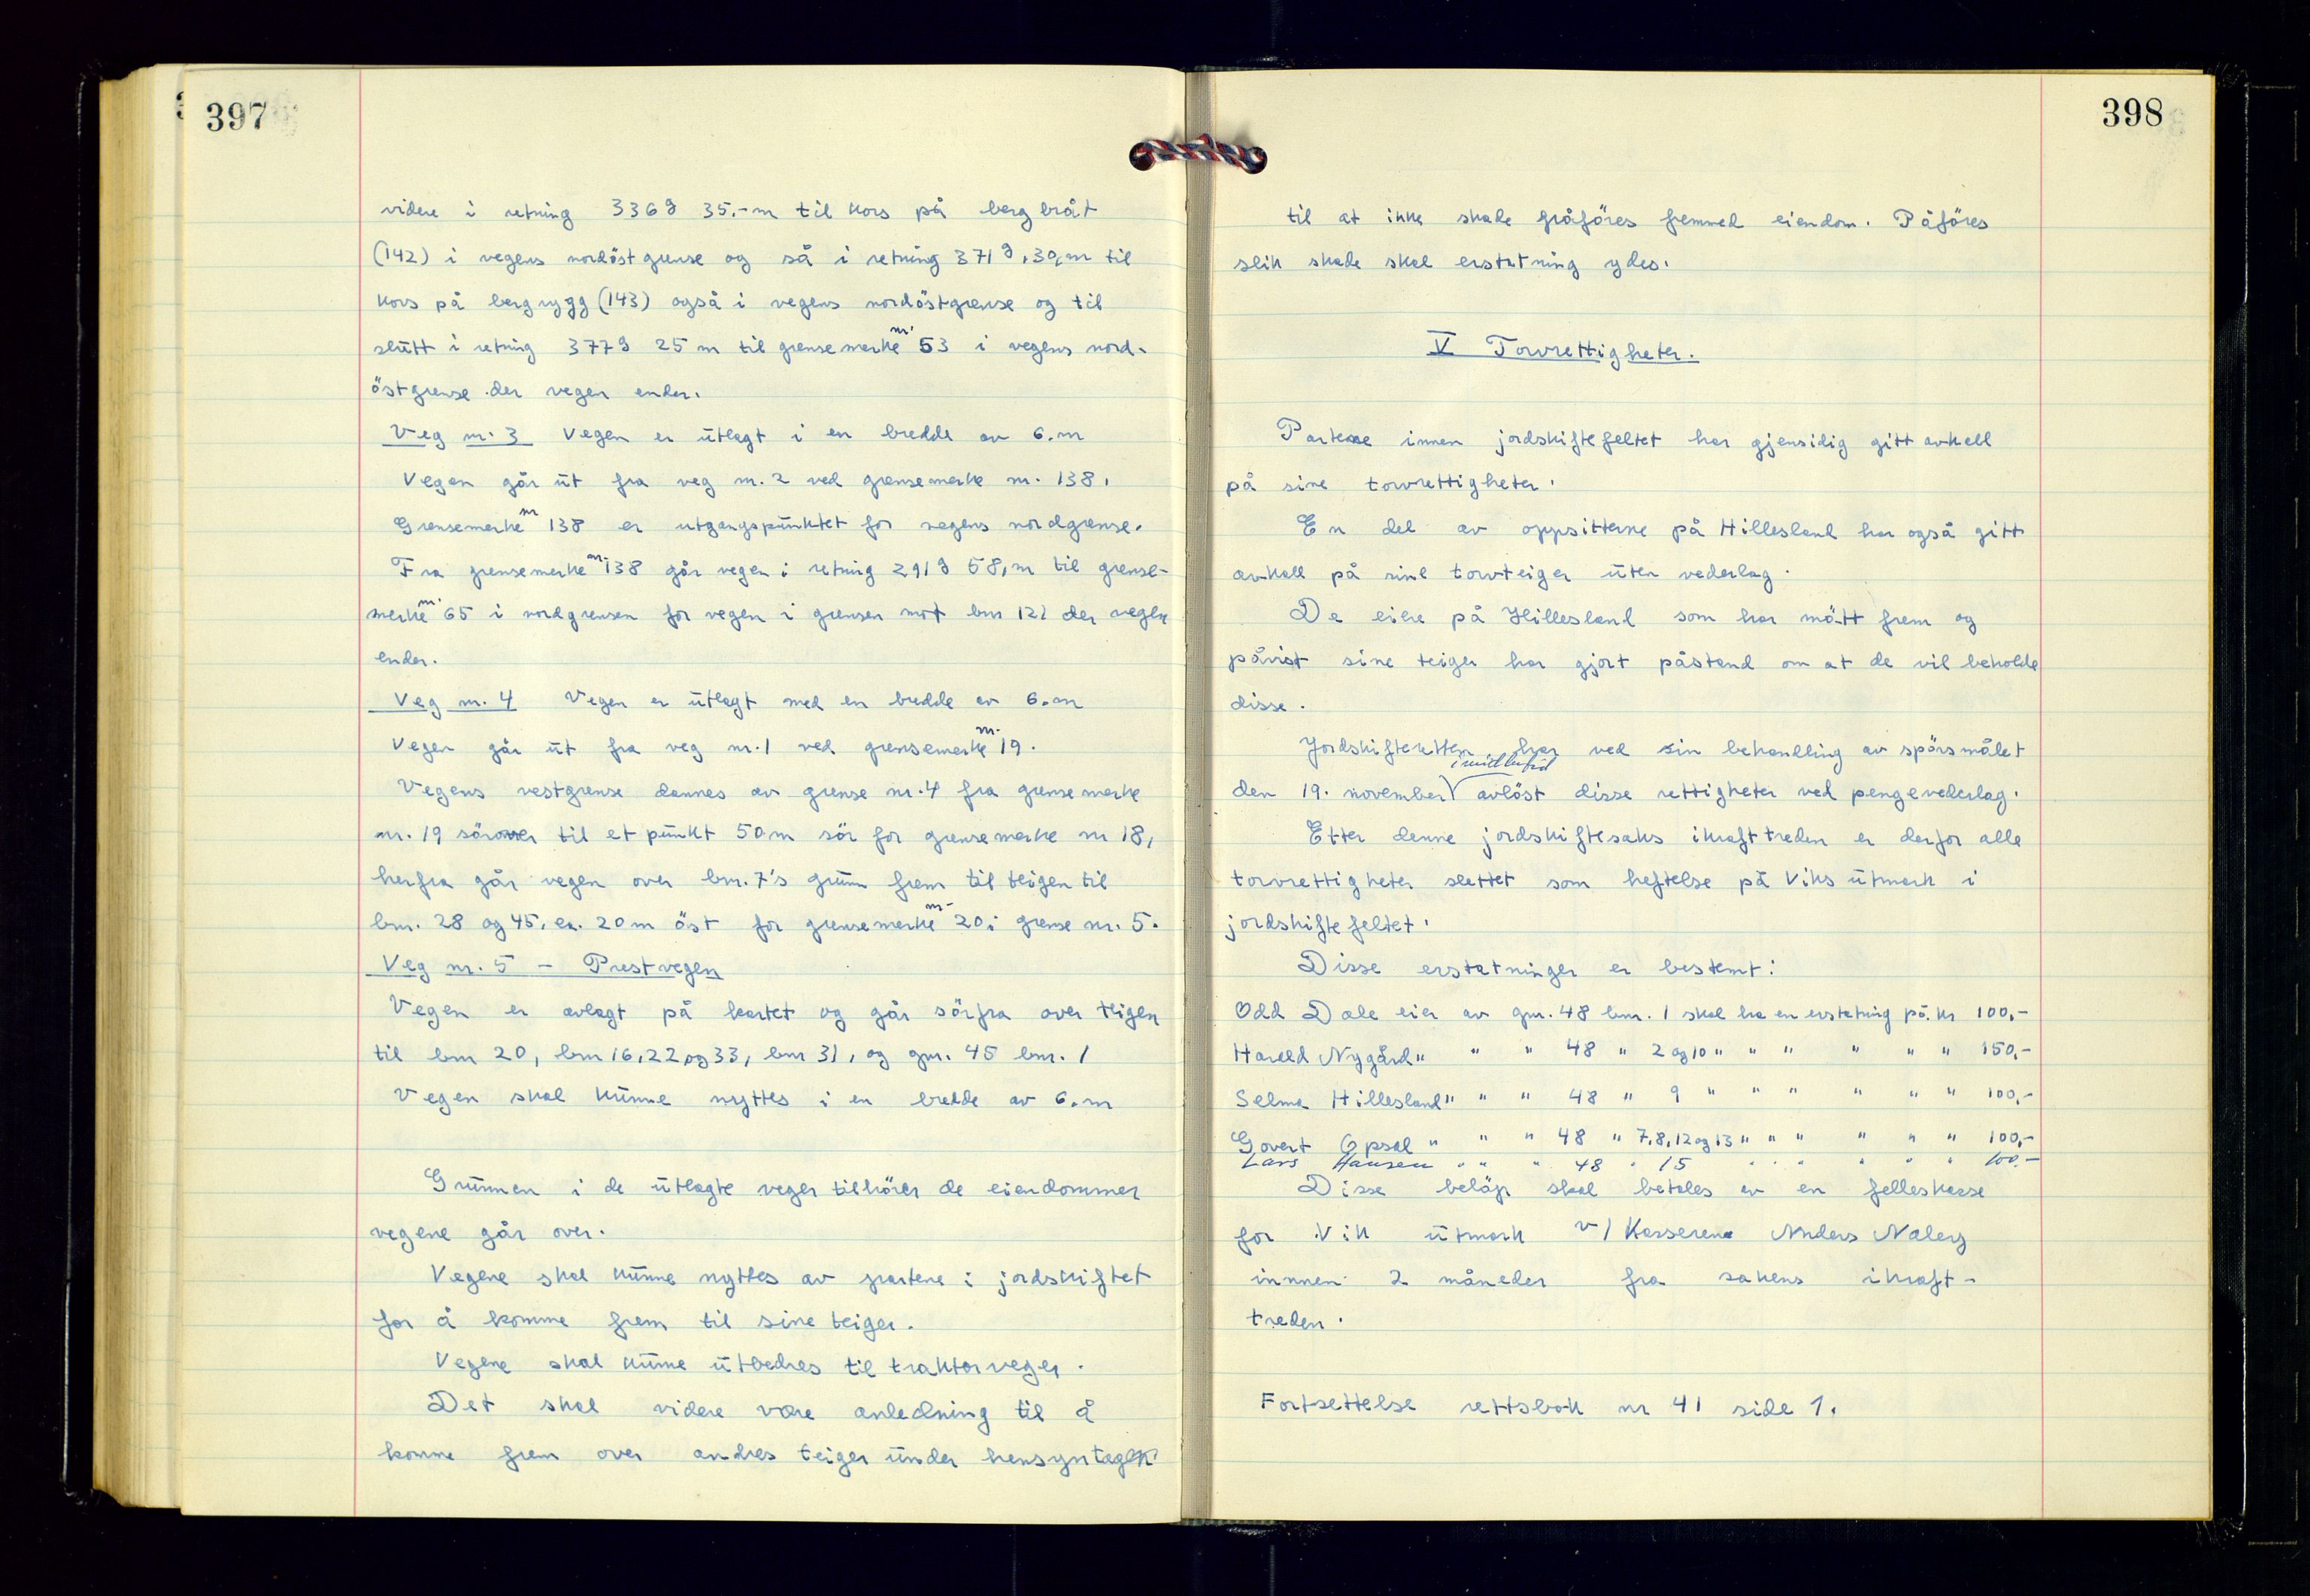 397
videre i retning 336g 35.-m til kors på bergbråt
(142) i vegens nordöstgrense og så i retning 371g, 30,m til
kors på bergrygg (143) også i vegens nordöstgrense og til
slutt i retning 377g 25 m til grensemerke nr. 53 i vegens nord-
östgrense der vegen ender.
Veg nr. 3 Vegen er utlagt i en bredde av 6.m
Vegen går ut fra veg nr. 2 ved grensemerke nr. 138.
Grensemerke nr 138 er utgangspunktet for vegens nordgrense.
Fra grensemerke nr. 138 går vegen i retning 291g 58,m til grense-
merke nr. 65 i nordgrensen for vegen i grensen mot bnr 122 der vegen
ender.
Veg nr. 4 Vegen er utlagt med en bredde av 6.m
Vegen går ut fra veg nr. 1 ved grensemerke nr. 19.
Vegens vestgrense dannes av grense nr. 4 fra grensemerke
nr. 19 sörover til et punkt 50m sör for grensemerke nr 18,
herfra går vegen over bnr. 7's grunn frem til teigen til
bnr. 28 og 45, ca. 20m öst for grensemerke nr. 20 i grense nr. 5.
Veg nr. 5 - Prestvegen
Vegen er avlagt på kartet og går sörfra over teigen
til bnr 20, bnr 16,22,og 33, bnr 31, og gnr. 45 bnr. 1
Vegen skal kunne nyttes i en bredde av 6.m
Grunnen i de utlagte veger tilhörer de eiendommer
vegene går over.
Vegene skal kunne nyttes av partene i jordskiftet
for å komme frem til sine teiger.
Vegene skal kunne utbedres til traktorveger.
Det skal videre være anledning til å
komme frem over andres teiger under hensyntagen
398
til at ikke skade fråföres fremmed eiendom. Påföres
slik skade skal erstatning ydes.
V Torvrettigheter.
Partene innen jordskiftefeltet har gjensidig gitt avkall
på sine torvrettigheter.
En del av oppsitterne på Hillesland har også gitt
avkall på sine torvteiger uten vederlag.
De eiere på Hillesland som har mött frem og
påvist sine teiger har gjort påstand om at de vil beholde
disse.
Jordskifteretten har ved sin behandling av spörsmålet
den 19. november imidlertid avlöst disse rettigheter ved pengevederlag.
Etter denne jordskiftesaks ikrafttreden er derfor alle
torvrettigheter slettet som heftelse på Viks utmark i
jordskiftefeltet.
Disse erstatninger er bestemt:
Odd Dale eier av gnr. 48 bnr. 1 skal ha en erstatning på kr 100,-
Harald Nygård " " " 48 " 2 og 10 " " " " " " 150,-
Selma Hillesland " " " 48 " 9 " " " " " " 100,-
Govert Opsal " " " 48 " 7,8,12 og 13 " " " " " " 100,-
Lars Hansen " " " 48 " 15 " " " " " " 100.-
Disse belöp skal betales av en felleskasse
for Vik utmark v/ Kasserene Anders Naley
innen 2 måneder fra sakens ikraft-
treden.
Fortsettelse rettsbok nr 41 side 1.